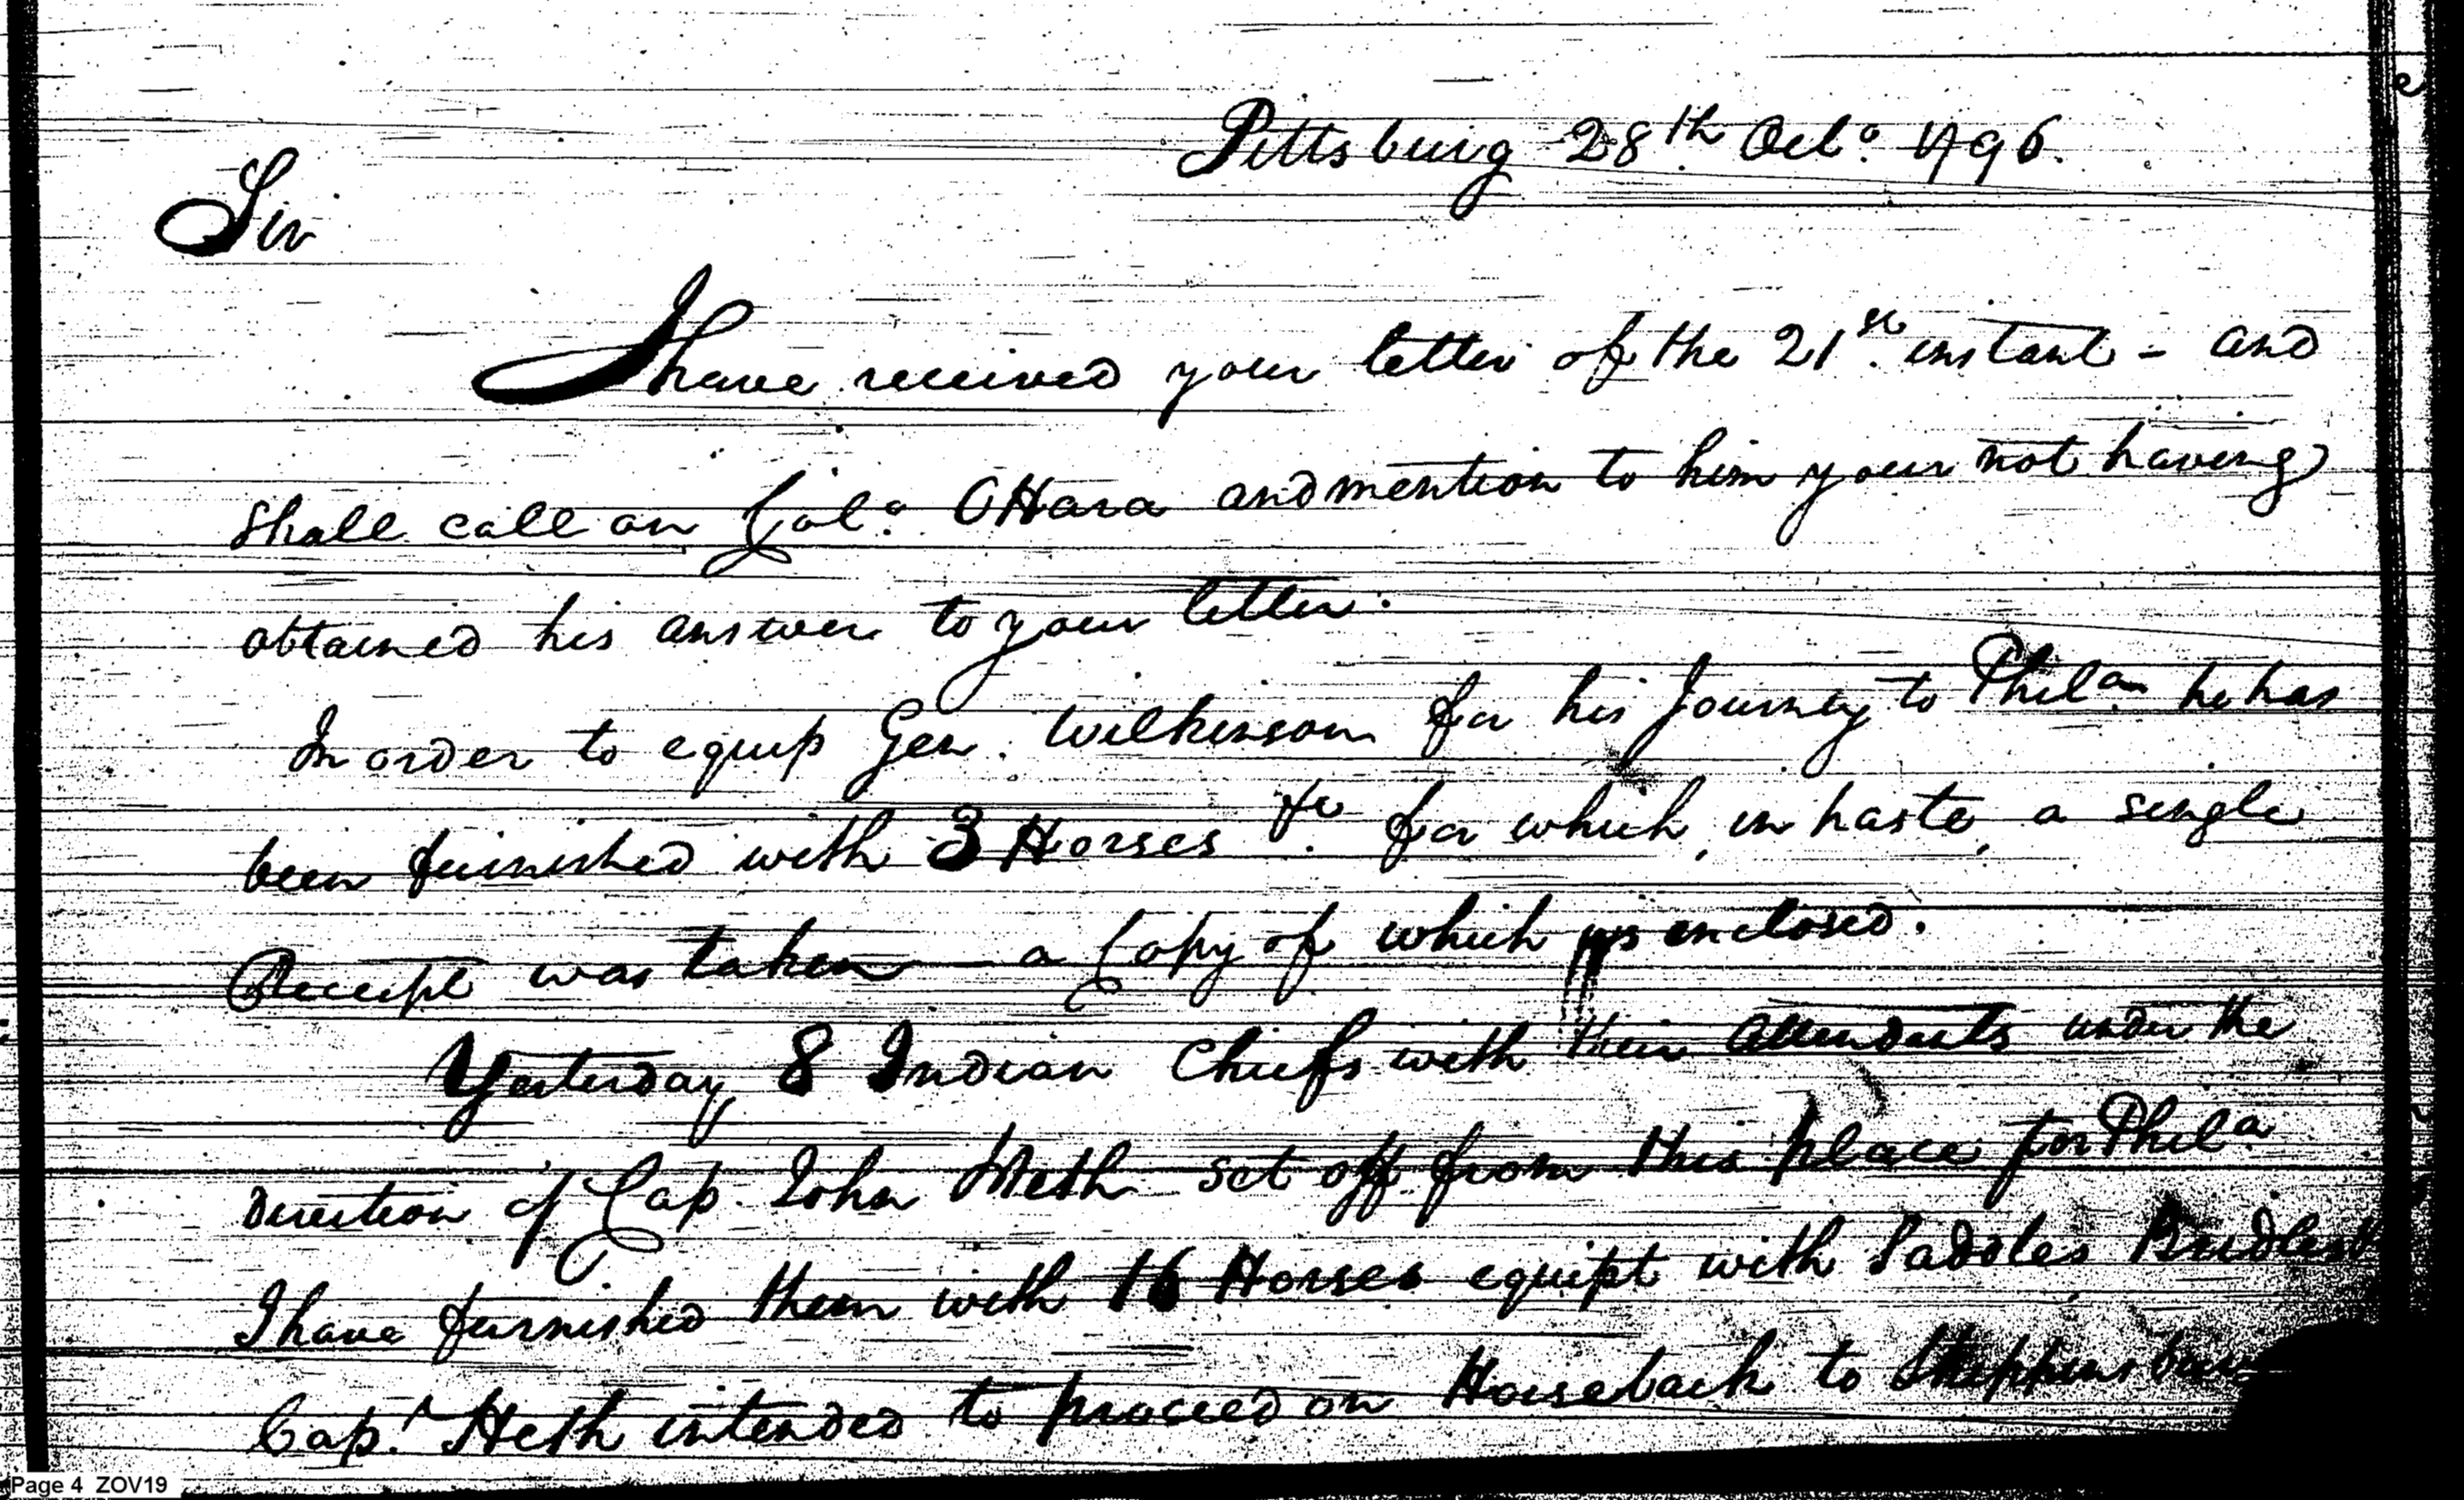 Pittsburg 28th Octo. 1796.
Sir
I have received your letter of the 21st. instant - and
shall call on Colo. OHara and mention to him your not having
obtained his answer to your letter.
In order to equip Gen. Wilkinson for his Journey to Phila. he has
been furnished with 3 Horses &c. for which, in haste, a single
Receipt was taken - a Copy of which is enclosed.
Yesterday 8 Indian Chiefs with their attendants under the
direction of Cap. John Heth set off from this place for Phila.
I have furnished them with 16 Horses equipt with Saddles Bridles &
Cap. Heth intended to proceed on Horseback to
Page 4 ZOV19